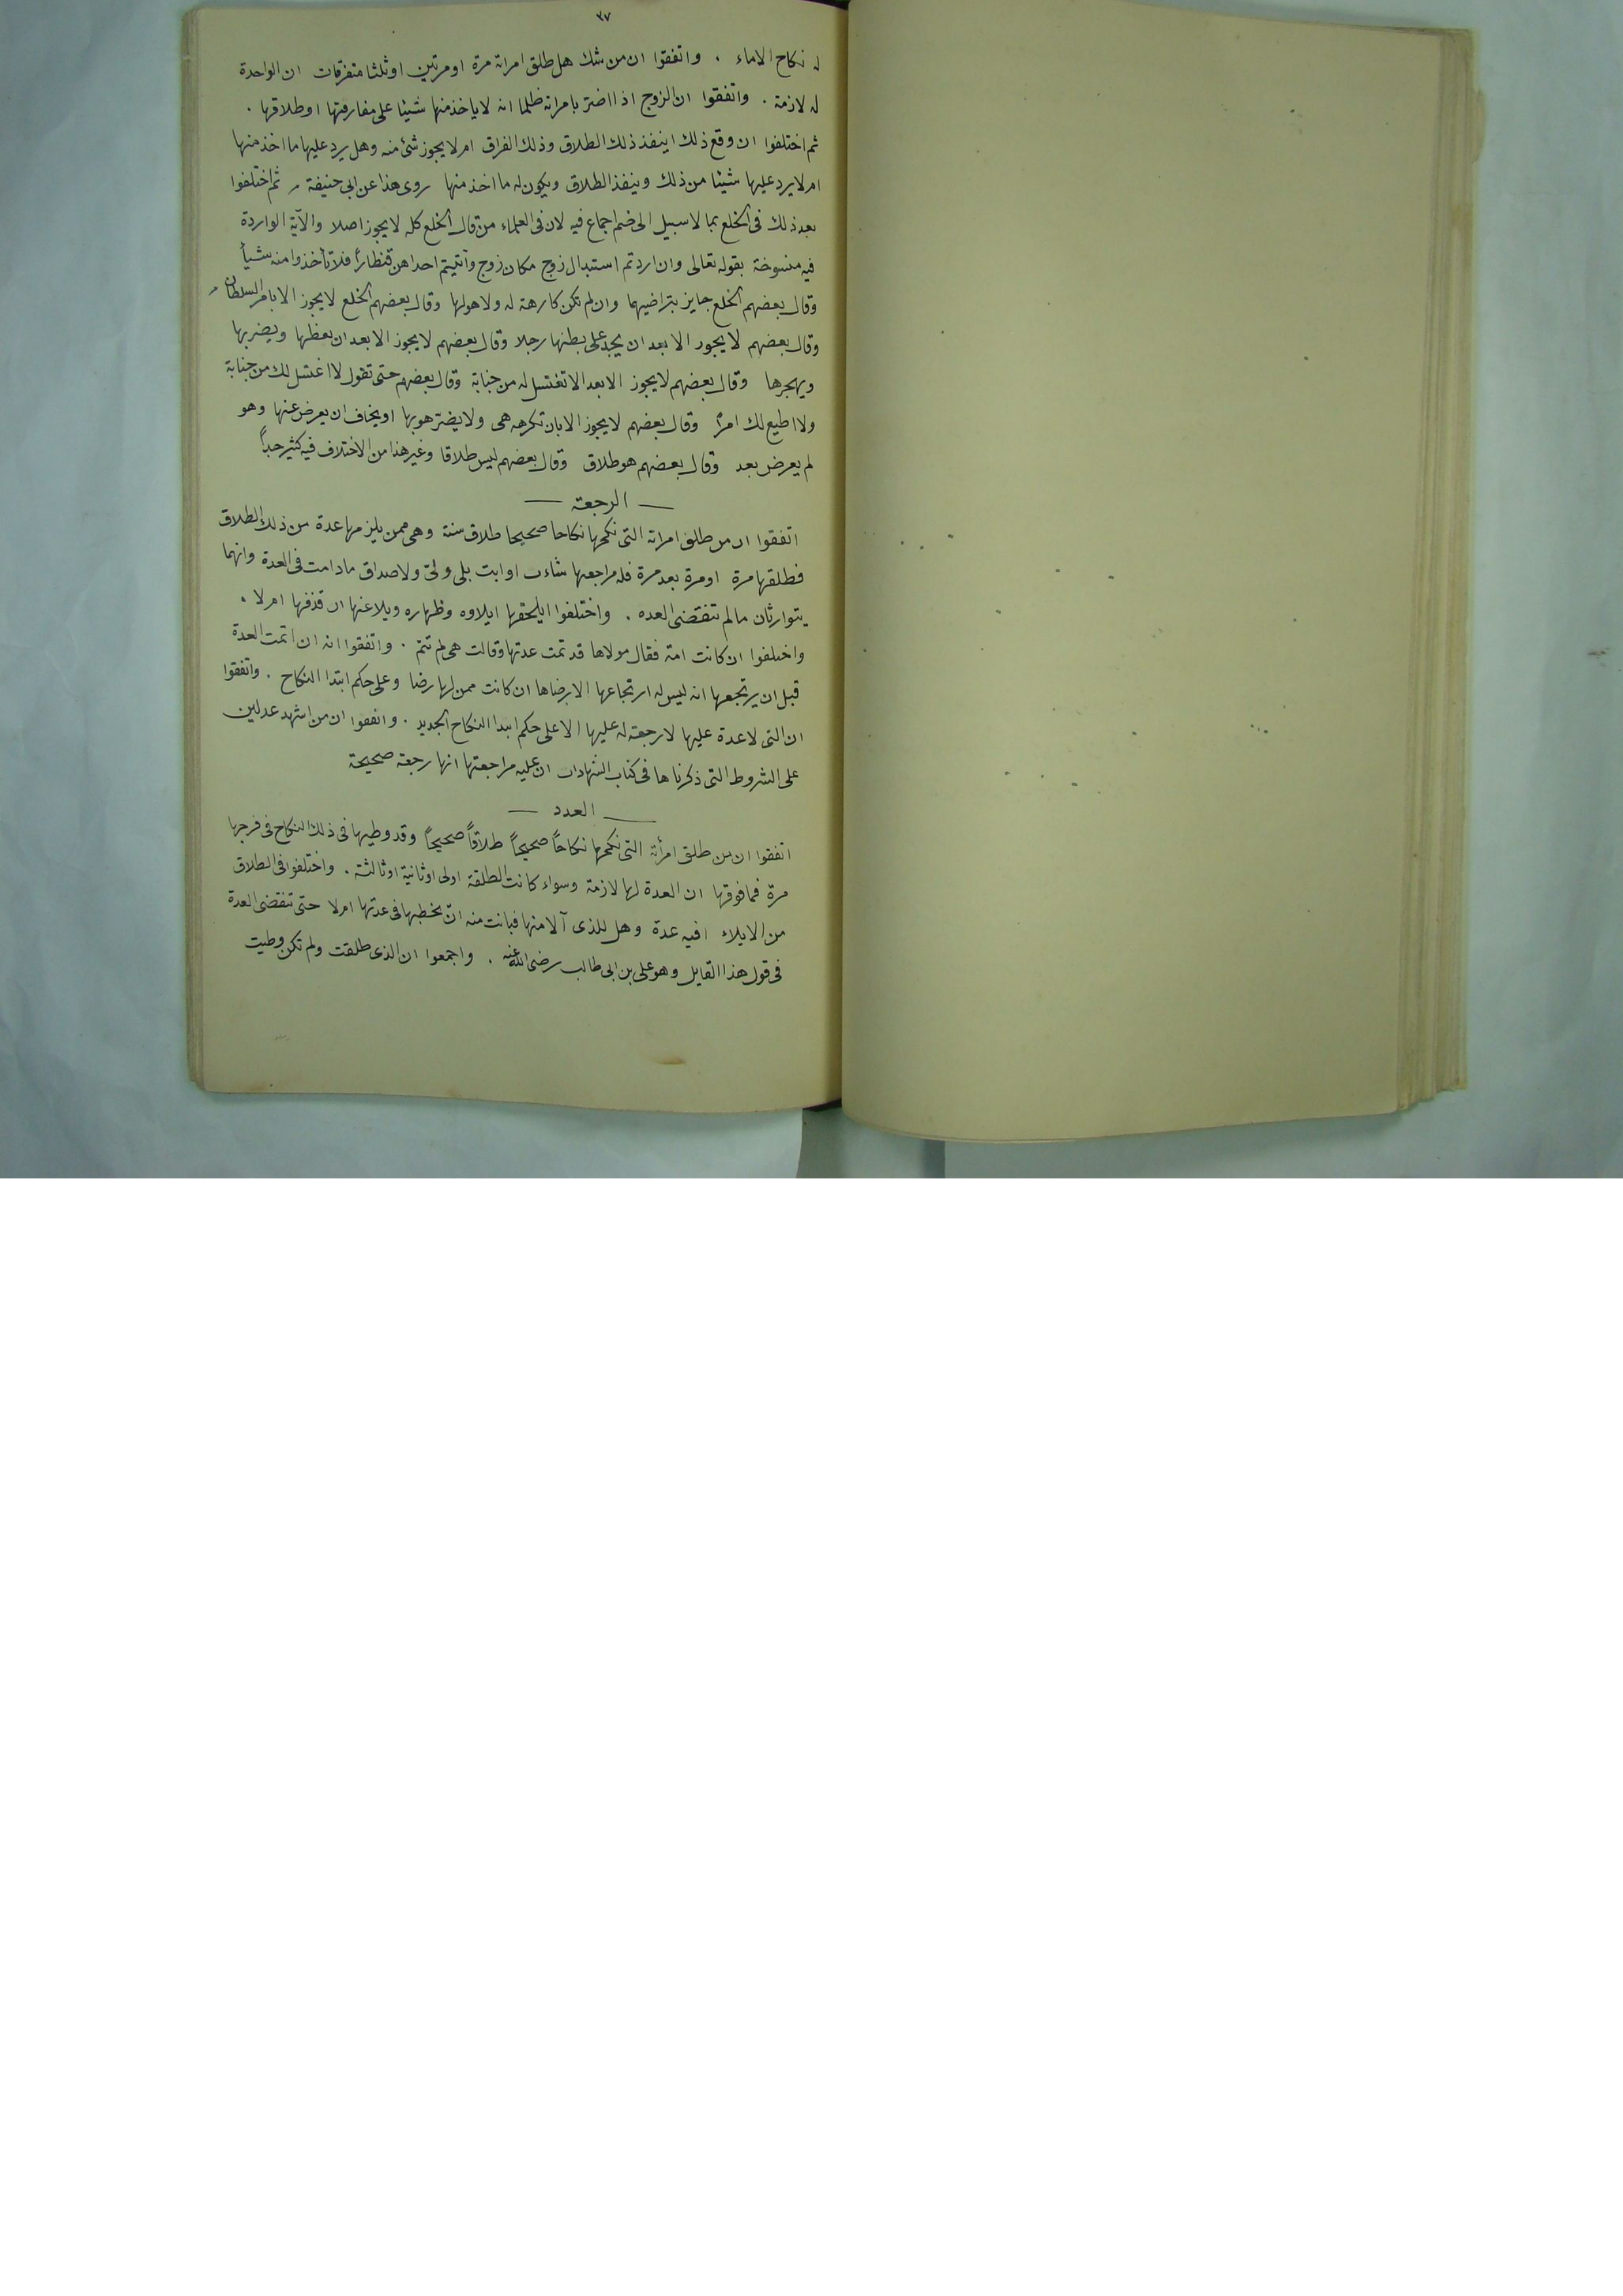 ٣٧
له نكاح الاماء . واتفقوا ان من شك هل طلق امراته مرة او مرتين او ثلثا متفرقات ان الواحدة
له لازمة . واتفقوا ان الزوج اذا اضتر بامراته ظلما انه لا ياخذ منها شيئا على مفارقتها او طلاقها .
ثم اختلفوا ان وقع ذلك اينفذ ذلك الطلاق وذلك الفراق ام لا يجوز شئ منه وهل يرد عليها ما اخذ منها
ام لا يرد عليها شيئا من ذلك وينفذ الطلاق ويكون له ما اخذ منها روى هذا عن ابى حنيفة ثم اختلفوا
بعد ذلك فى الخلع بما لا سبيل الى ضم اجماع فيه لان فى العلماء من قال الخلع كله لا يجوز اصلا والآية الواردة
فيه منسوخة بقوله تعالى وان اردتم استبدال زوج مكان زوج وآتيتم احداهن قنطاراً فلا تأخذوا منه شيأ
وقال بعضهم الخلع جايز بتراضيهما وان لم تكن كارهة له ولا هو لها وقال بعضهم الخلع لا يجوز الا بامر السلطان
وقال بعضهم لا يجوز الا بعد ان يجد على بطنها رجلا وقال بعضهم لا يجوز الا بعد ان يعظها ويضربها
ويهجرها وقال بعضهم لا يجوز الا بعد الا تغتسل له من جنابة وقال بعضهم حتى تقول لا اغتسل لك من جنابة
ولا اطيع لك امرًا وقال بعضهم لا يجوز الا بان تكرهه هى ولا يضتر هو بها او يخاف ان يعرض عنها وهو
لم يعرض بعد وقال بعضهم هو طلاق وقال بعضهم ليس طلاقا وغير هذا من الاختلاف فيه كثير جداً
الرجعة
اتفقوا ان من طلق امراته التى نكحها نكاحا صحيحا طلاق سنة وهى ممن يلزمها عدة من ذلك الطلاق
فطلقها مرة او مرة بعد مرة فله مراجعتها شاءت او ابت بلى ولىّ ولا صداق ما دامت فى العدة وانهما
يتوارثان ما لم تنقضى العده . واختلفوا ايلحقها ايلاوه وظهاره ويلاعنها ان قذفها ام لا .
واختلفوا ان كانت امة فقال مولاها قد تمت عدتها وقالت هى لم تتم . واتفقوا انه ان اتمت العدة
قبل ان يرتجعها انه ليس له ارتجاعها الا برضاها ان كانت ممن لها رضا وعلى حكم ابتدا النكاح . واتفقوا
ان التى لا عدة عليها لا رجعة له عليها الا على حكم ابتدا النكاح الجديد . واتفقوا ان من اشهد عدلين
على الشروط التى ذكرناها فى كتاب الشهادات ان عليه مراجعتها انها رجعة صحيحة
العدد
اتفقوا ان من طلق امرأته التى نكحها نكاحاً صحيحاً طلاقاً صحيحاً وقد وطيها فى ذلك النكاح فى فرجها
مرة فما فوقها ان العدة لها لازمة وسواء كانت الطلقة اولى او ثانية او ثالثة . واختلفوا فى الطلاق
من الايلاء افيه عدة وهل للذى آلا منها فبانت منه ان يخطبها فى عدتها ام لا حتى تنقضى العدة
فى قول هذا القايل وهو على بن ابى طالب رضى الله عنه . واجمعوا ان الذى طلقت ولم تكن وطيت